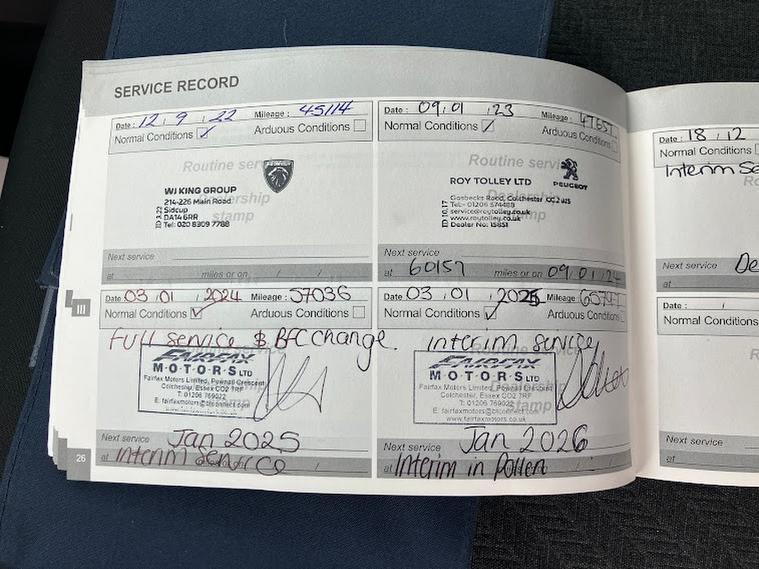 SERVICE RECORD
Date : 12 : 9 : 22 Mileage : 45114
Normal Conditions Arduous Conditions
Routine service
Dealership
stamp
WJ KING GROUP
214-226 Main Road
Sidcup
DA14 6RR
Tel: 020 8309 7788
Next service
at miles or on / /
Date : 09 : 01 : 23 Mileage :
Normal Conditions Arduous Conditions
Routine servi
ROY TOLLEY LTD
PEUGEOT
Gosbecks Road, Colchester CO2 9JS
Tel:- 01206 574488
service@roytolley.co.uk
www.roytolley.co.uk
Next service
at 60157 miles or on 09 / 01 / 24
III
Date 03 : 01 : 2024 Mileage : 57036
Normal Conditions Arduous Conditions
Full service & BFC change.
FAIRFAX
MOTORS LTD
Fairfax Motors Limited, Pownall Crescent
Colchester, Essex CO2 7RF
T: 01206 769022
E: fairfaxmotors@btconnect.com
Next service Jan 2025
at interim service
Date : 03 : 01 : 2025 Mileage
Normal Conditions Arduous Conditions
interim service
FAIRFAX
MOTORS LTD
Fairfax Motors Limited, Pownall Crescent
Colchester, Essex CO2 7RF
T: 01206 769022
E: fairfaxmotors@btconnect.com
www.fairfaxmotors.co.uk
Next service Jan 2026
at Interim in pollen
26
Date : 18 : 12
Normal Conditions
Interim Se
Next service De
at
Date : /
Normal Conditions
Next service
at